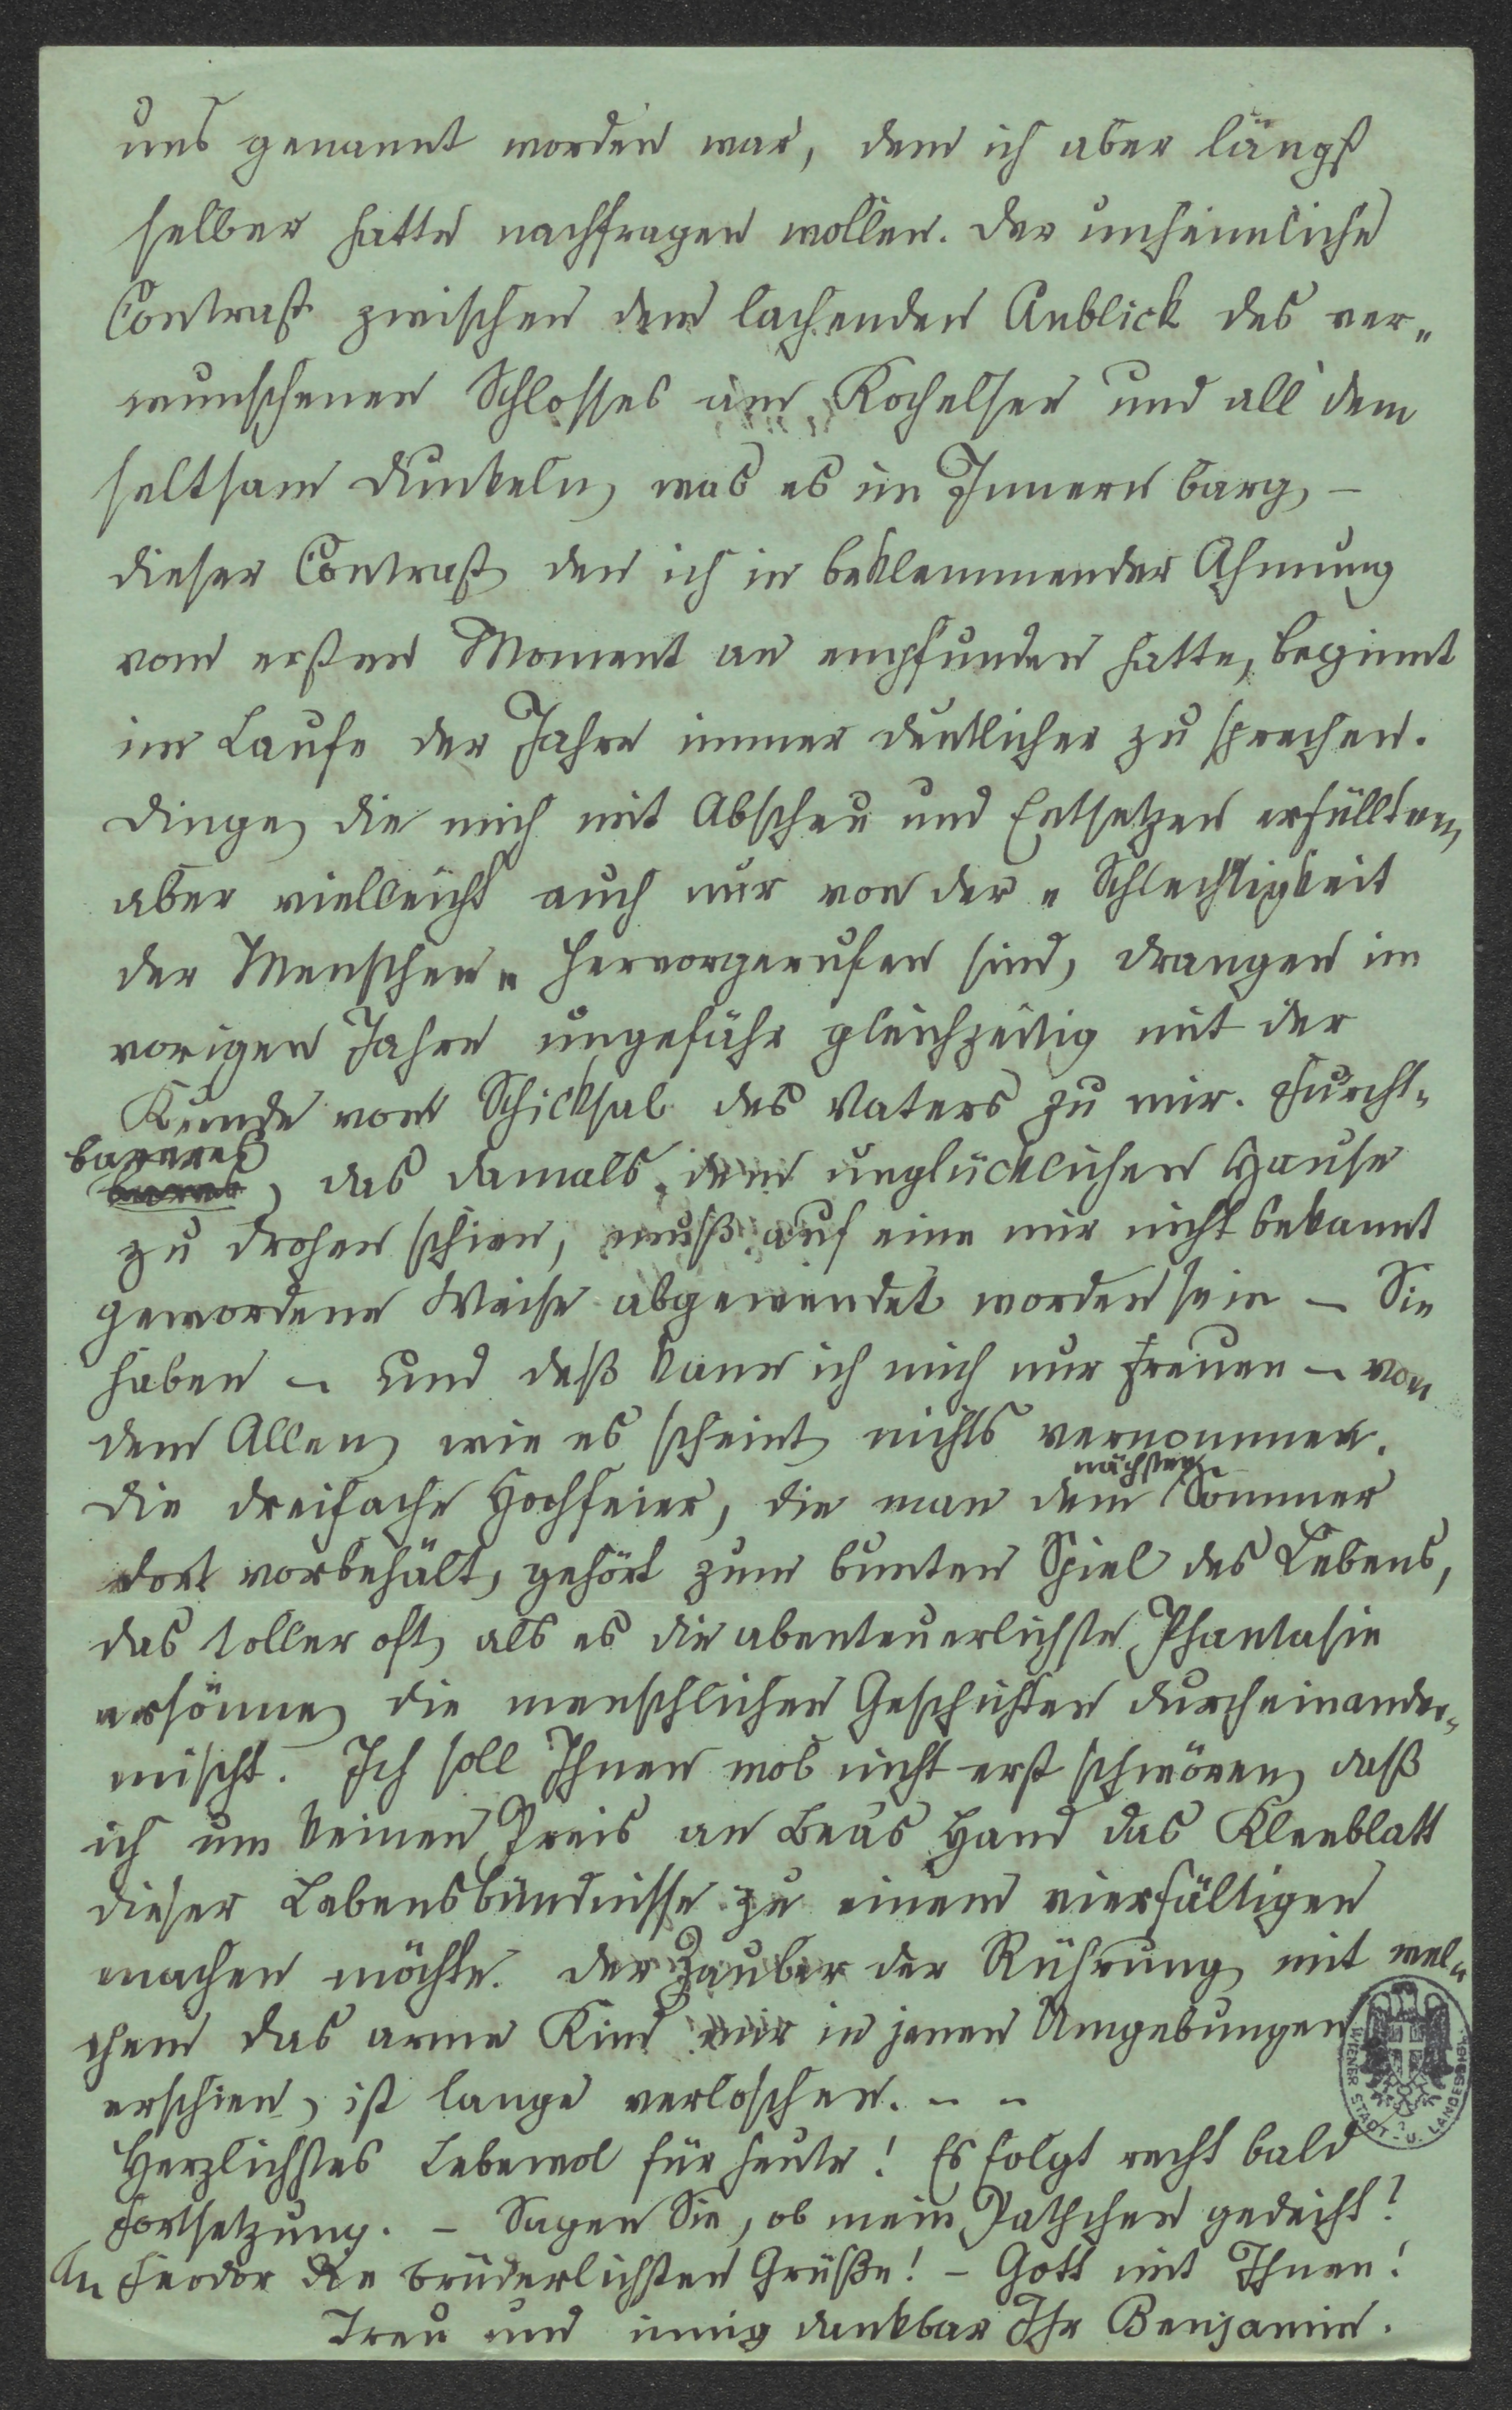 uns genannt worden war, dem ich aber längst
selber hatte nachfragen wollen. Der unheimliche
Contrast zwischen dem lachenden Anblick des ver-
wunschenen Schlosses am Kochelsee und all' dem
seltsam Dunkeln, was es im Innern barg, –
dieser Contrast, den ich in beklemmender Ahnung
vom ersten Moment an empfunden hatte, beginnt
im Laufe der Jahre immer deutlicher zu sprechen.
Dinge, die mich mit Abscheu und Entsetzen erfüllten,
aber vielleicht auch nur von der "Schlechtigkeit
der Menschen" hervorgerufen sind, drangen im
vorigen Jahre ungefähr gleichzeitig mit der
Kunde vom Schicksal des Vaters zu mir. Furcht-
bareres, das damals dem unglücklichen Hause
zu drohen schien, muß auf eine mir nicht bekannt
gewordene Weise abgewendet worden sein – Sie
haben – und deß kann ich mich nur freuen – von
dem Allen, wie es scheint, nichts vernommen.
Die dreifache Hochfeier, die man dem nächsten Sommer
dort vorbehält, gehört zum bunten Spiel des Lebens,
das toller oft, als es die abenteuerlichste Phantasie
ersönne, die menschlichen Geschichten durcheinander-
mischt. Ich soll Ihnen wol nicht erst schwören, daß
ich um keinen Preis an Beas Hand das Kleeblatt
dieser Lebensbündnisse zu einem vierfältigen
machen möchte. Der Zauber der Rührung, mit wel-
chem das arme Kind mir in jenen Umgebungen
erschien, ist lange verloschen. – –
Herzlichstes Lebewol für heute! Es folgt recht bald
Fortsetzung. – Sagen Sie, ob mein Pathchen gedeiht?
An Feodor die brüderlichsten Grüße! – Gott mit Ihnen!
Treu und innig dankbar Ihr Benjamin.
WIENER STADT- U. LANDESBIBL.